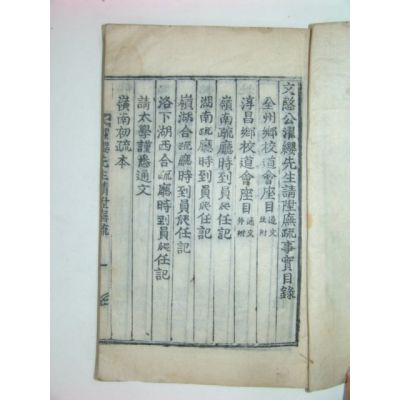 文愍公濯纓先生請陞廡疏事實目錄
全州鄉校道會座目通文並附
淳昌鄉校道會座目通文並附
嶺南疏廳時到員爬任記
湖南疏廳時到員爬任記
嶺湖合疏廳時到員爬任記
洛下湖西合疏廳時到員爬任記
請太學謹悉通文
嶺南初疏本
濯纓先生請陞廡疏
一